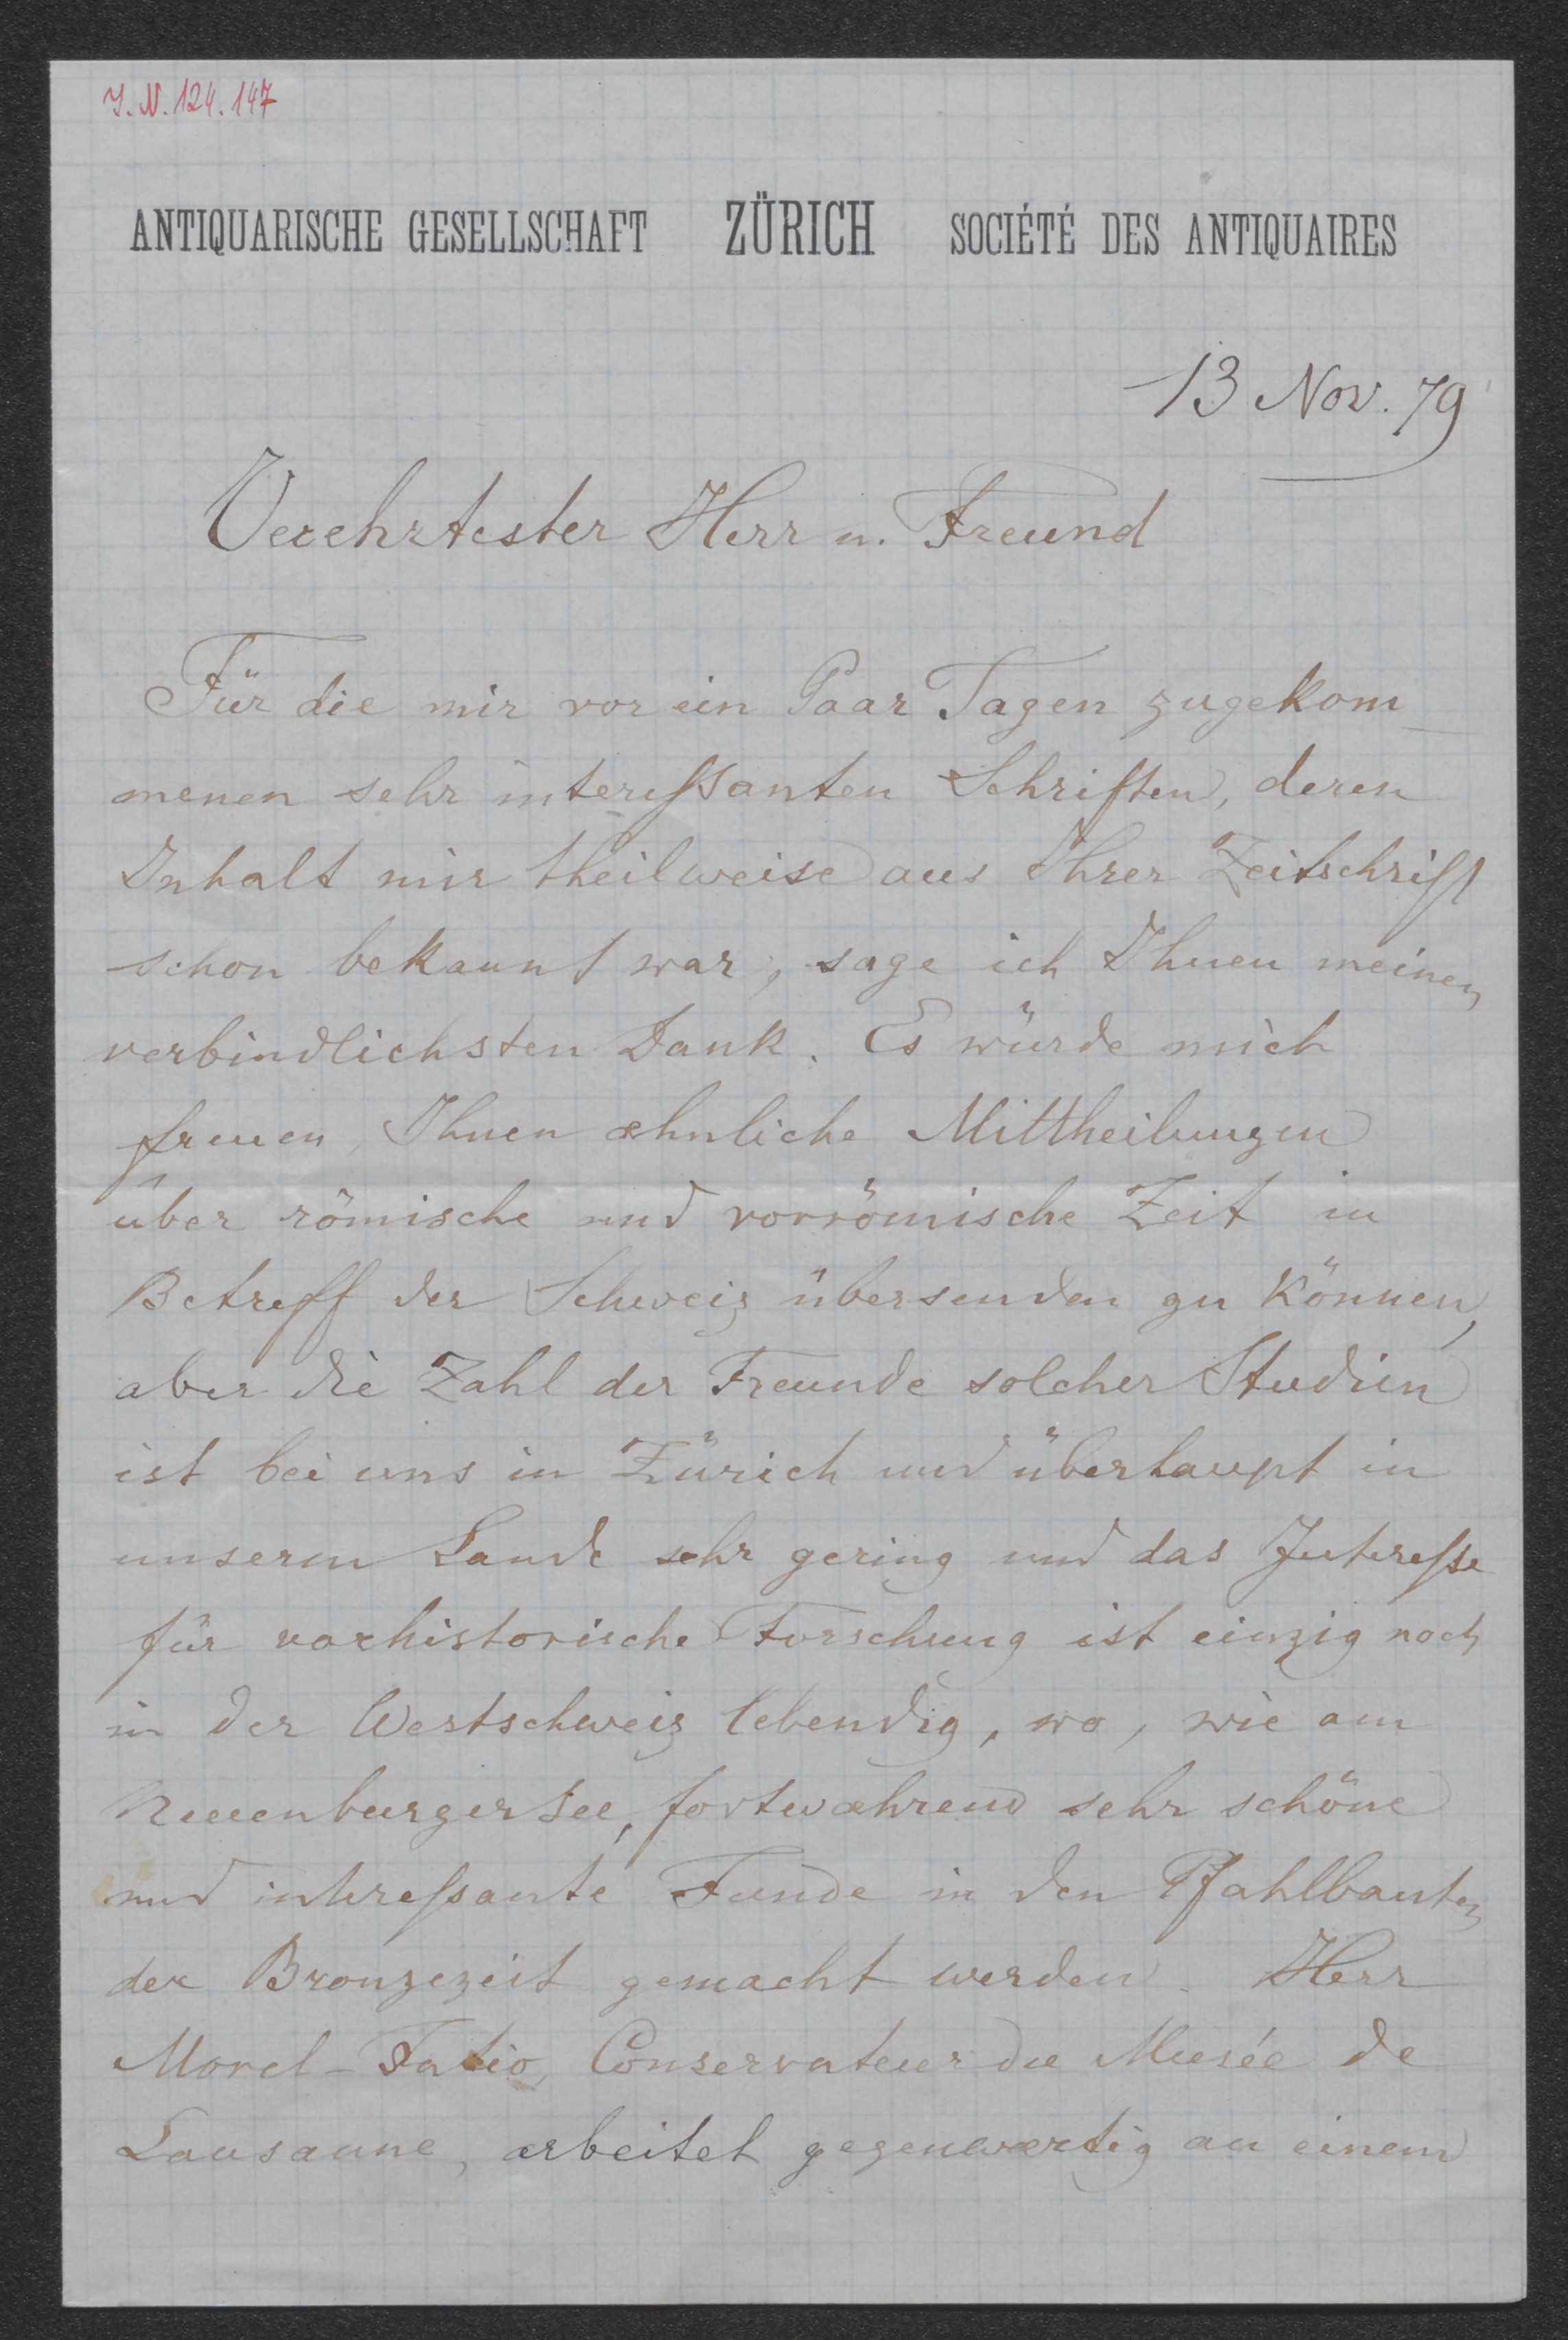 J. N. 124.147
ANTIQUARISCHE GESELLSCHAFT ZÜRICH SOCIÉTÉ DES ANTIQUAIRES
13 Nov. 79
Verehrtester Herr u. Freund
Für die mir vor ein Paar Tagen zugekom-
menen sehr intereſsanten Schriften, deren
Inhalt mir theilweise aus Ihrer Zeitschrift
schon bekannt war, sage ich Ihnen meinen
verbindlichsten Dank. Es würde mich
freuen, Ihnen æhnliche Mittheilungen
über römische und vorrömische Zeit in
Betreff der Schweiz übersenden zu können,
aber die Zahl der Freunde solcher Studien
ist bei uns in Zürich und überhaupt in
unserm Lande sehr gering und das Intereſse
für vorhistorische Forschung ist einzig noch
in der Westschweiz lebendig, wo, wie am
Neuenburgersee, fortwæhrend sehr schöne
und intereſsante Funde in den Pfahlbauten
der Bronzezeit gemacht werden. Herr
Morel-Fatio, Conservateur du Musée de
Lausanne, arbeitet gegenwærtig an einem